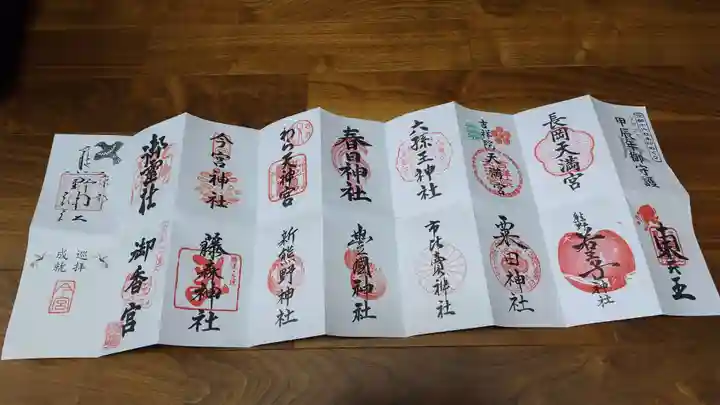 甲辰年御守護
長岡天満宮
吉祥院天満宮
六孫王神社
春日神社
わら天神宮
今宮神社
御霊社
東天王
熊野若王子神社
粟田神社
市比賣神社
豊國神社
新熊野神社
藤森神社
御香宮
巡拝
成就